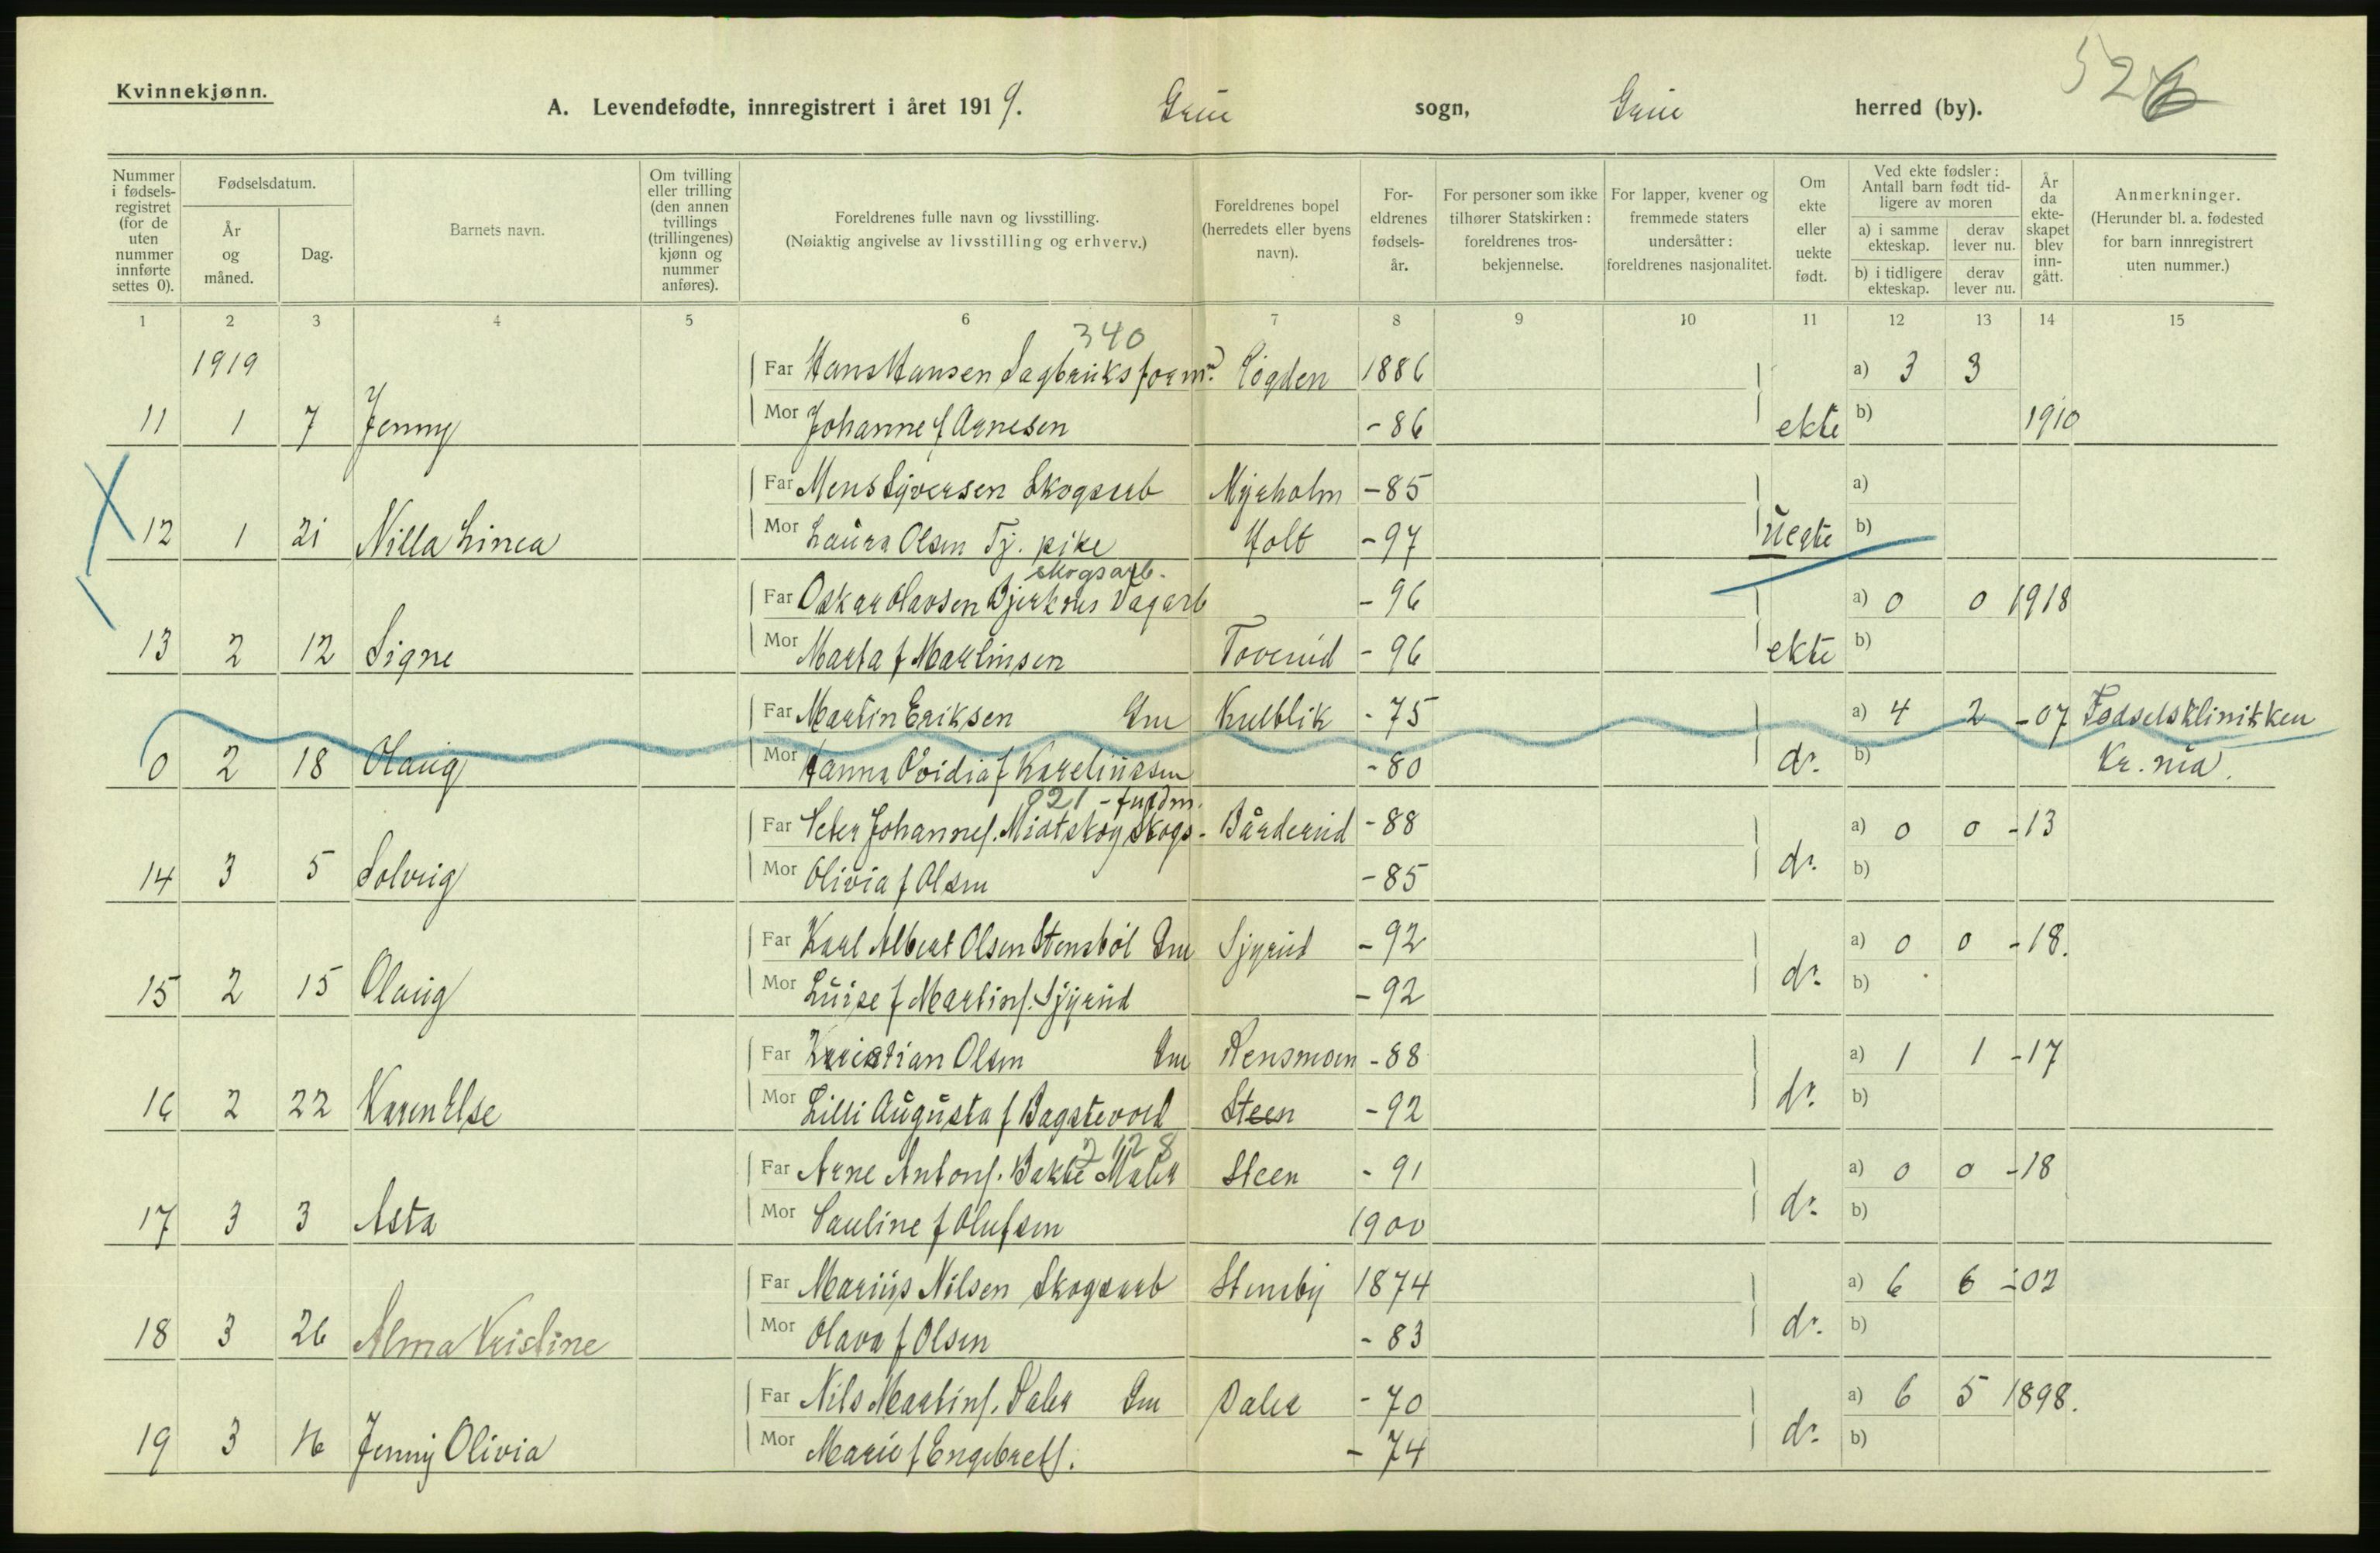 Kvinnekjønn.
A. Levendefødte, innregistrert i året 1919. Grue sogn, Grue herred (by).
Nummer i fødsels-registret (for de uten nummer innførte settes 0).
Fødselsdatum.
År og måned.
Dag.
Barnets navn.
Om tvilling eller trilling (den annen tvillings (trillingenes) kjønn og nummer anføres).
Foreldrenes fulle navn og livsstilling.
(Nøiaktig angivelse av livsstilling og erhverv.)
Foreldrenes bopel (herredets eller byens navn).
For-eldrenes fødsels-år.
For personer som ikke tilhører Statskirken: foreldrenes tros-bekjennelse.
For lapper, kvener og fremmede staters undersåtter: foreldrenes nasjonalitet.
Om ekte eller uekte født.
Ved ekte fødsler: Antall barn født tid-ligere av moren
a) i samme ekteskap.
derav lever nu.
b) i tidligere ekteskap.
derav lever nu.
År da ekte-skapet blev inn-gått.
Anmerkninger.
(Herunder bl. a. fødested for barn innregistrert uten nummer.)
1 2 3 4 5 6 7 8 9 10 11 12 13 14 15
340
1919 Far Hans Hansen Sagbruksform. Løgden 1886 a) 3 3
11 1 7 Jenny Mor Johanne f Arnesen -86 ekte b) 1910
Far Mens Syversen Skogsarb Myrholm -85 a)
12 1 21 Nilla Linea Mor Laura Olsen Tj. pike Holt -97 uegte b)
skogsarb.
Far Oskar Olavsen Bjerknes Dagarb -96 a) 0 0 1918
13 2 12 Signe Mor Marta f Martinsen Toverud -96 ekte b)
Far Martin Eriksen Gm Kulblik -75 a) 4 2 -07 Fødselsklinikken
0 2 18 Olaug Mor Hanna Ovidia f Kareliussen -80 do. b) Kr.nia.
821 -fuldm.
Far Peter Johannes. Midtskog Skogs- Bårderud -88 a) 0 0 -13
14 3 5 Solveig Mor Olivia f Olsen -85 do. b)
Far Karl Albert Olsen Stensbøl Gm Sjyrud -92 a) 0 0 -18.
15 2 15 Olaug Mor Luise f Martins. Sjyrud -92 do. b)
Far Kristian Olsen Gm Rensmoen -88 a) 1 1 -17
16 2 22 Karen Else Mor Lilli Augusta f Bagstevold Steen -92 do. b)
2128
Far Arne Antons. Bakke Maler Steen -91 a) 0 0 -18
17 3 3 Asta Mor Pauline f Olufsen 1900 do. b)
Far Marius Nilsen Skogsarb Stensby 1874 a) 6 6 -02
18 3 26 Alma Kristine Mor Olava f Olsen -83 do. b)
Far Nils Martins. Daler Gm Daler -70 a) 6 5 1898.
19 3 16 Jenny Olivia Mor Marie f Engebrets. -74 do. b)